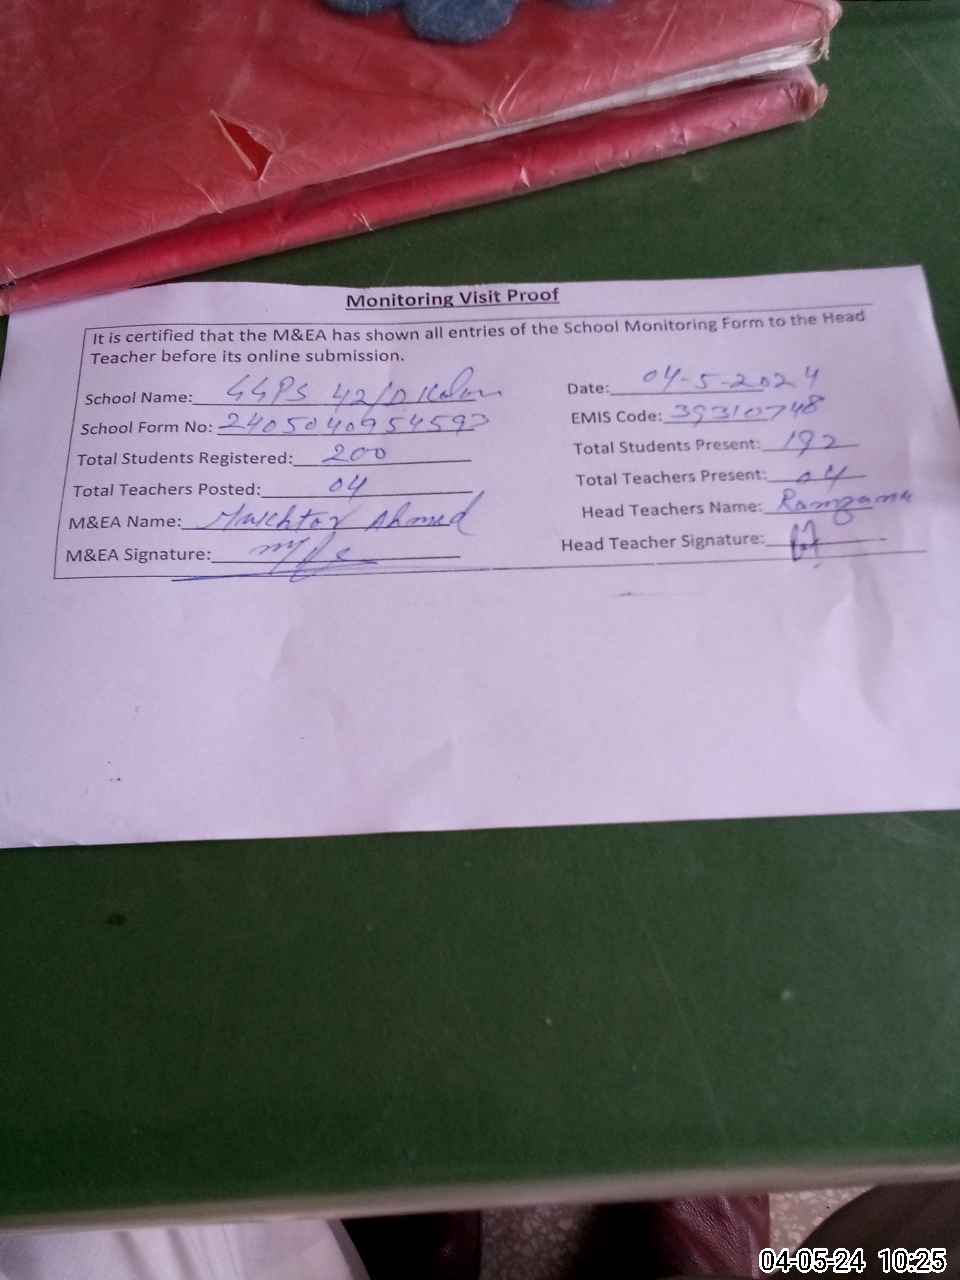 Monitoring Visit Proof
It is certified that the M&EA has shown all entries of the School Monitoring Form to the Head
Teacher before its online submission.
School Name: GGPS 42/D
Date: 04-5-2024
School Form No: 2405040954593
EMIS Code: 39310748
Total Students Registered: 200
Total Students Present: 192
Total Teachers Posted: 04
Total Teachers Present: 04
M&EA Name: Mukhtar Ahmed
Head Teachers Name:
M&EA Signature:
Head Teacher Signature:
04-05-24 10:25